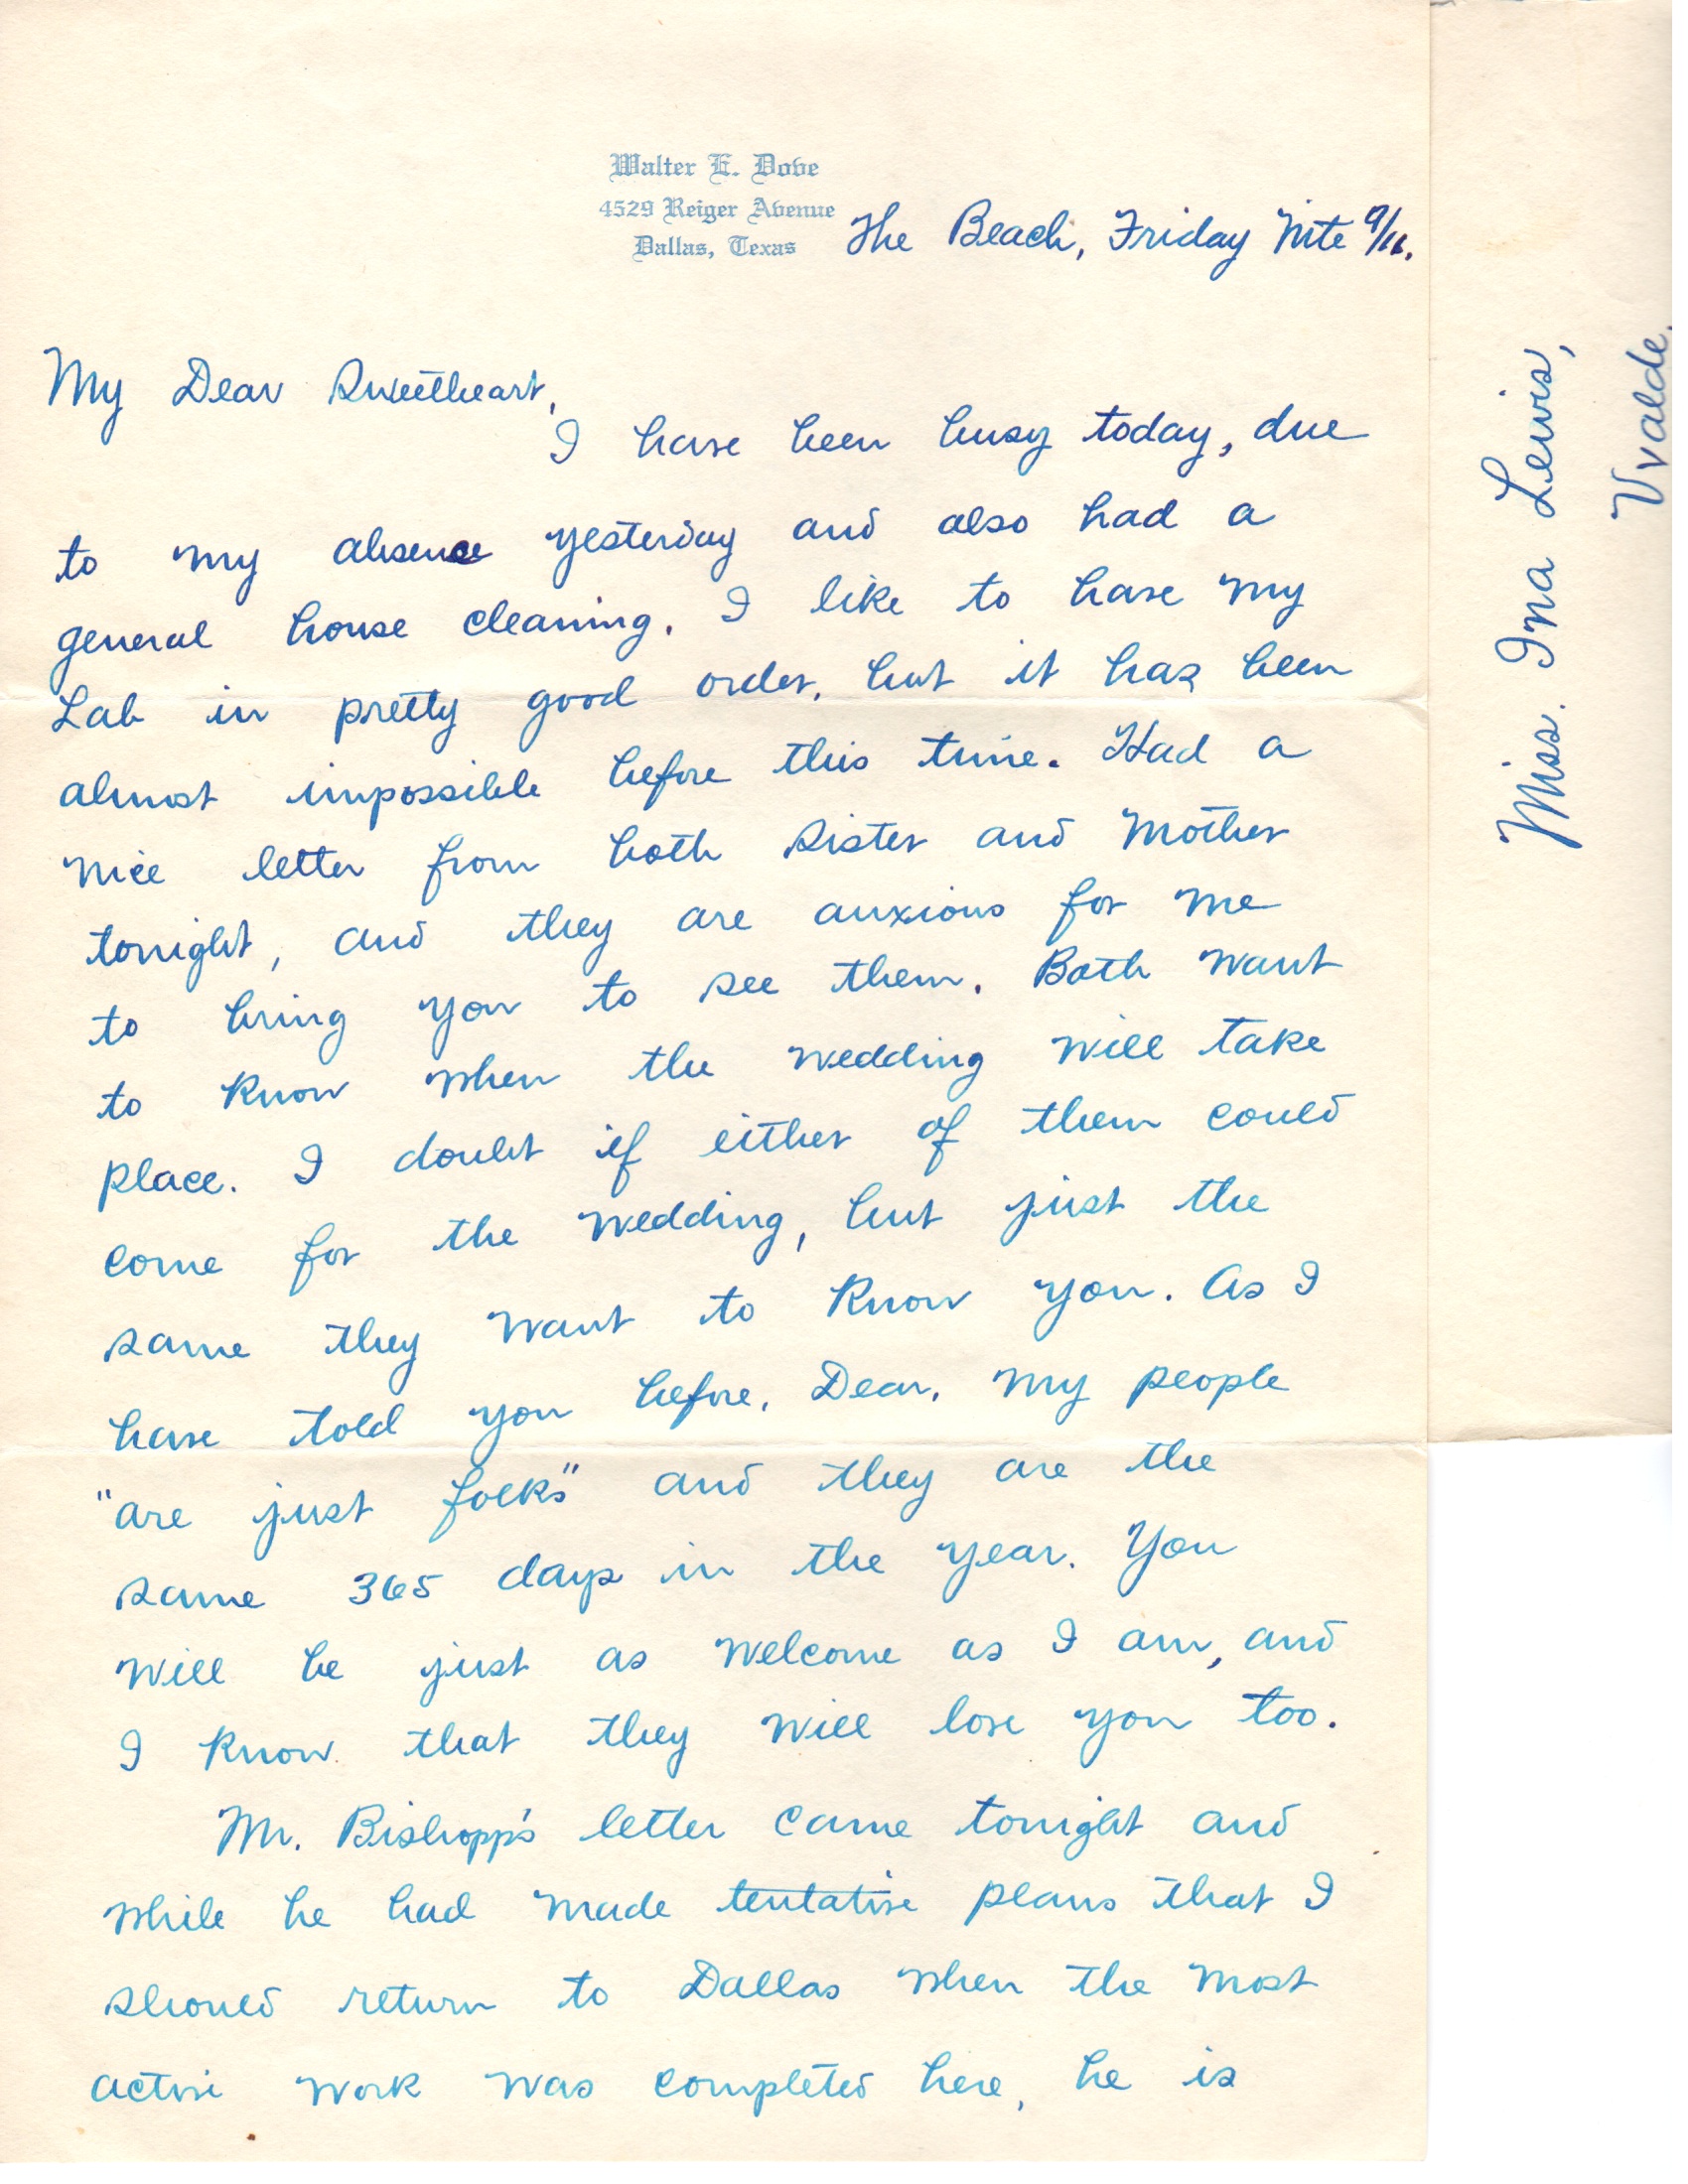 Walter E. Dove
4529 Reiger Avenue
Dallas, Texas
The Beach, Friday Nite 9/11.
My Dear Sweetheart,
I have been busy today, due
to my absence yesterday and also had a
general house cleaning. I like to have my
Lab in pretty good order, but it has been
almost impossible before this time. Had a
nice letter from both Sister and Mother
tonight, and they are anxious for me
to bring you to see them. Both want
to know when the wedding will take
place. I doubt if either of them could
come for the wedding, but just the
same they want to know you. As I
have told you before, Dear, my people
"are just folks" and they are the
same 365 days in the year. You
will be just as welcome as I am, and
I know that they will love you too.
Mr. Bishopp's letter came tonight and
while he had made tentative plans that I
should return to Dallas when the most
active work was completed here, he is
Miss. Ina Lewis,
Uvalde.